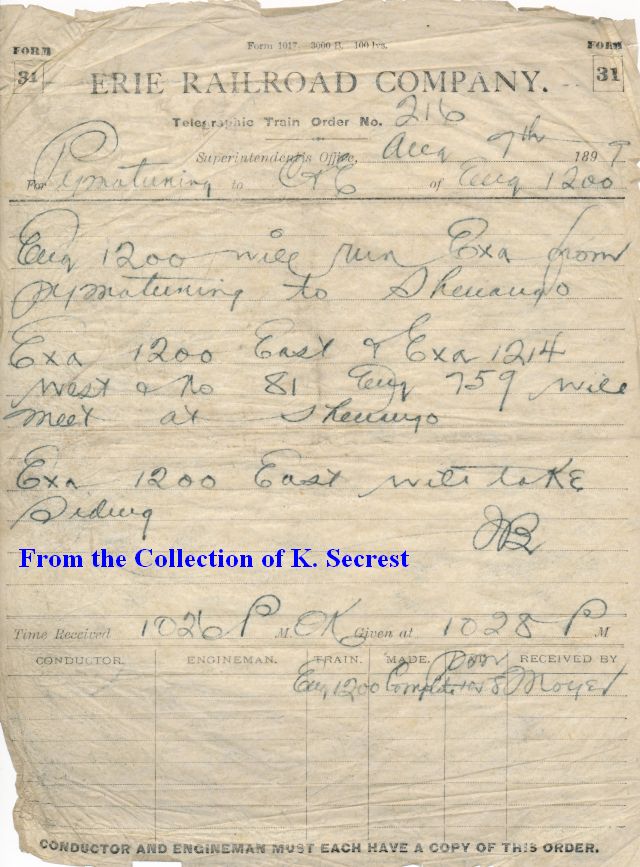 FORM Form 1017 3000 B. 100 lvs. FORM
31 31
ERIE RAILROAD COMPANY.
Telegraphic Train Order No. 216
Superintendent's Office, Aug 9th 1897
For Pymatuning to C&E of Eng 1200
Eng 1200 will run Exa from
pymatuning to Shenango
Exa 1200 East & Exa 1214
West & No 81 Eng 759 will
meet at Shenango
Exa 1200 East will take
Siding
From the Collection of K. Secrest
Time Received 1026 P M. OK Given at 1028 P M
CONDUCTOR. ENGINEMAN. TRAIN. MADE. RECEIVED BY
Eng 1200 Complete 1028 Moyer
CONDUCTOR AND ENGINEMAN MUST EACH HAVE A COPY OF THIS ORDER.